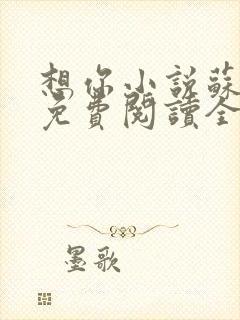 想你小說蘇
免費閱讀全
墨歌